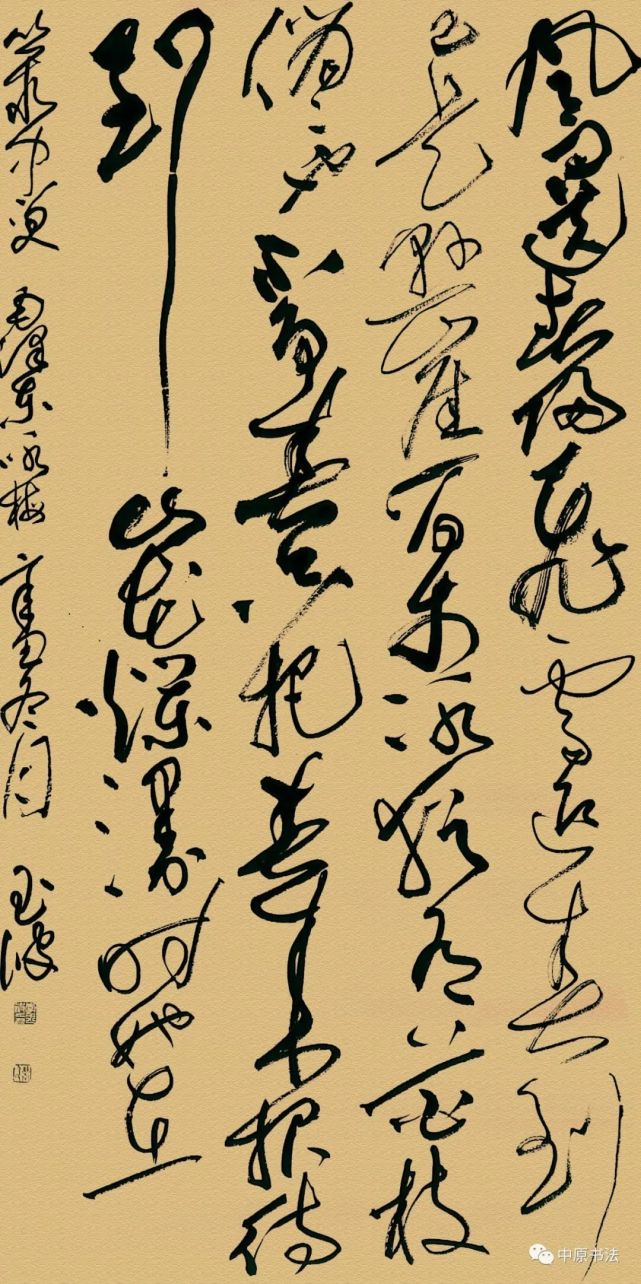 风雨送春归飞雪迎春到
已是悬崖百丈冰犹有花枝
俏々也不争春只把春来报待
到山花烂漫时她在
丛中笑 毛泽东咏梅 辛丑冬月 玉波
中原书法